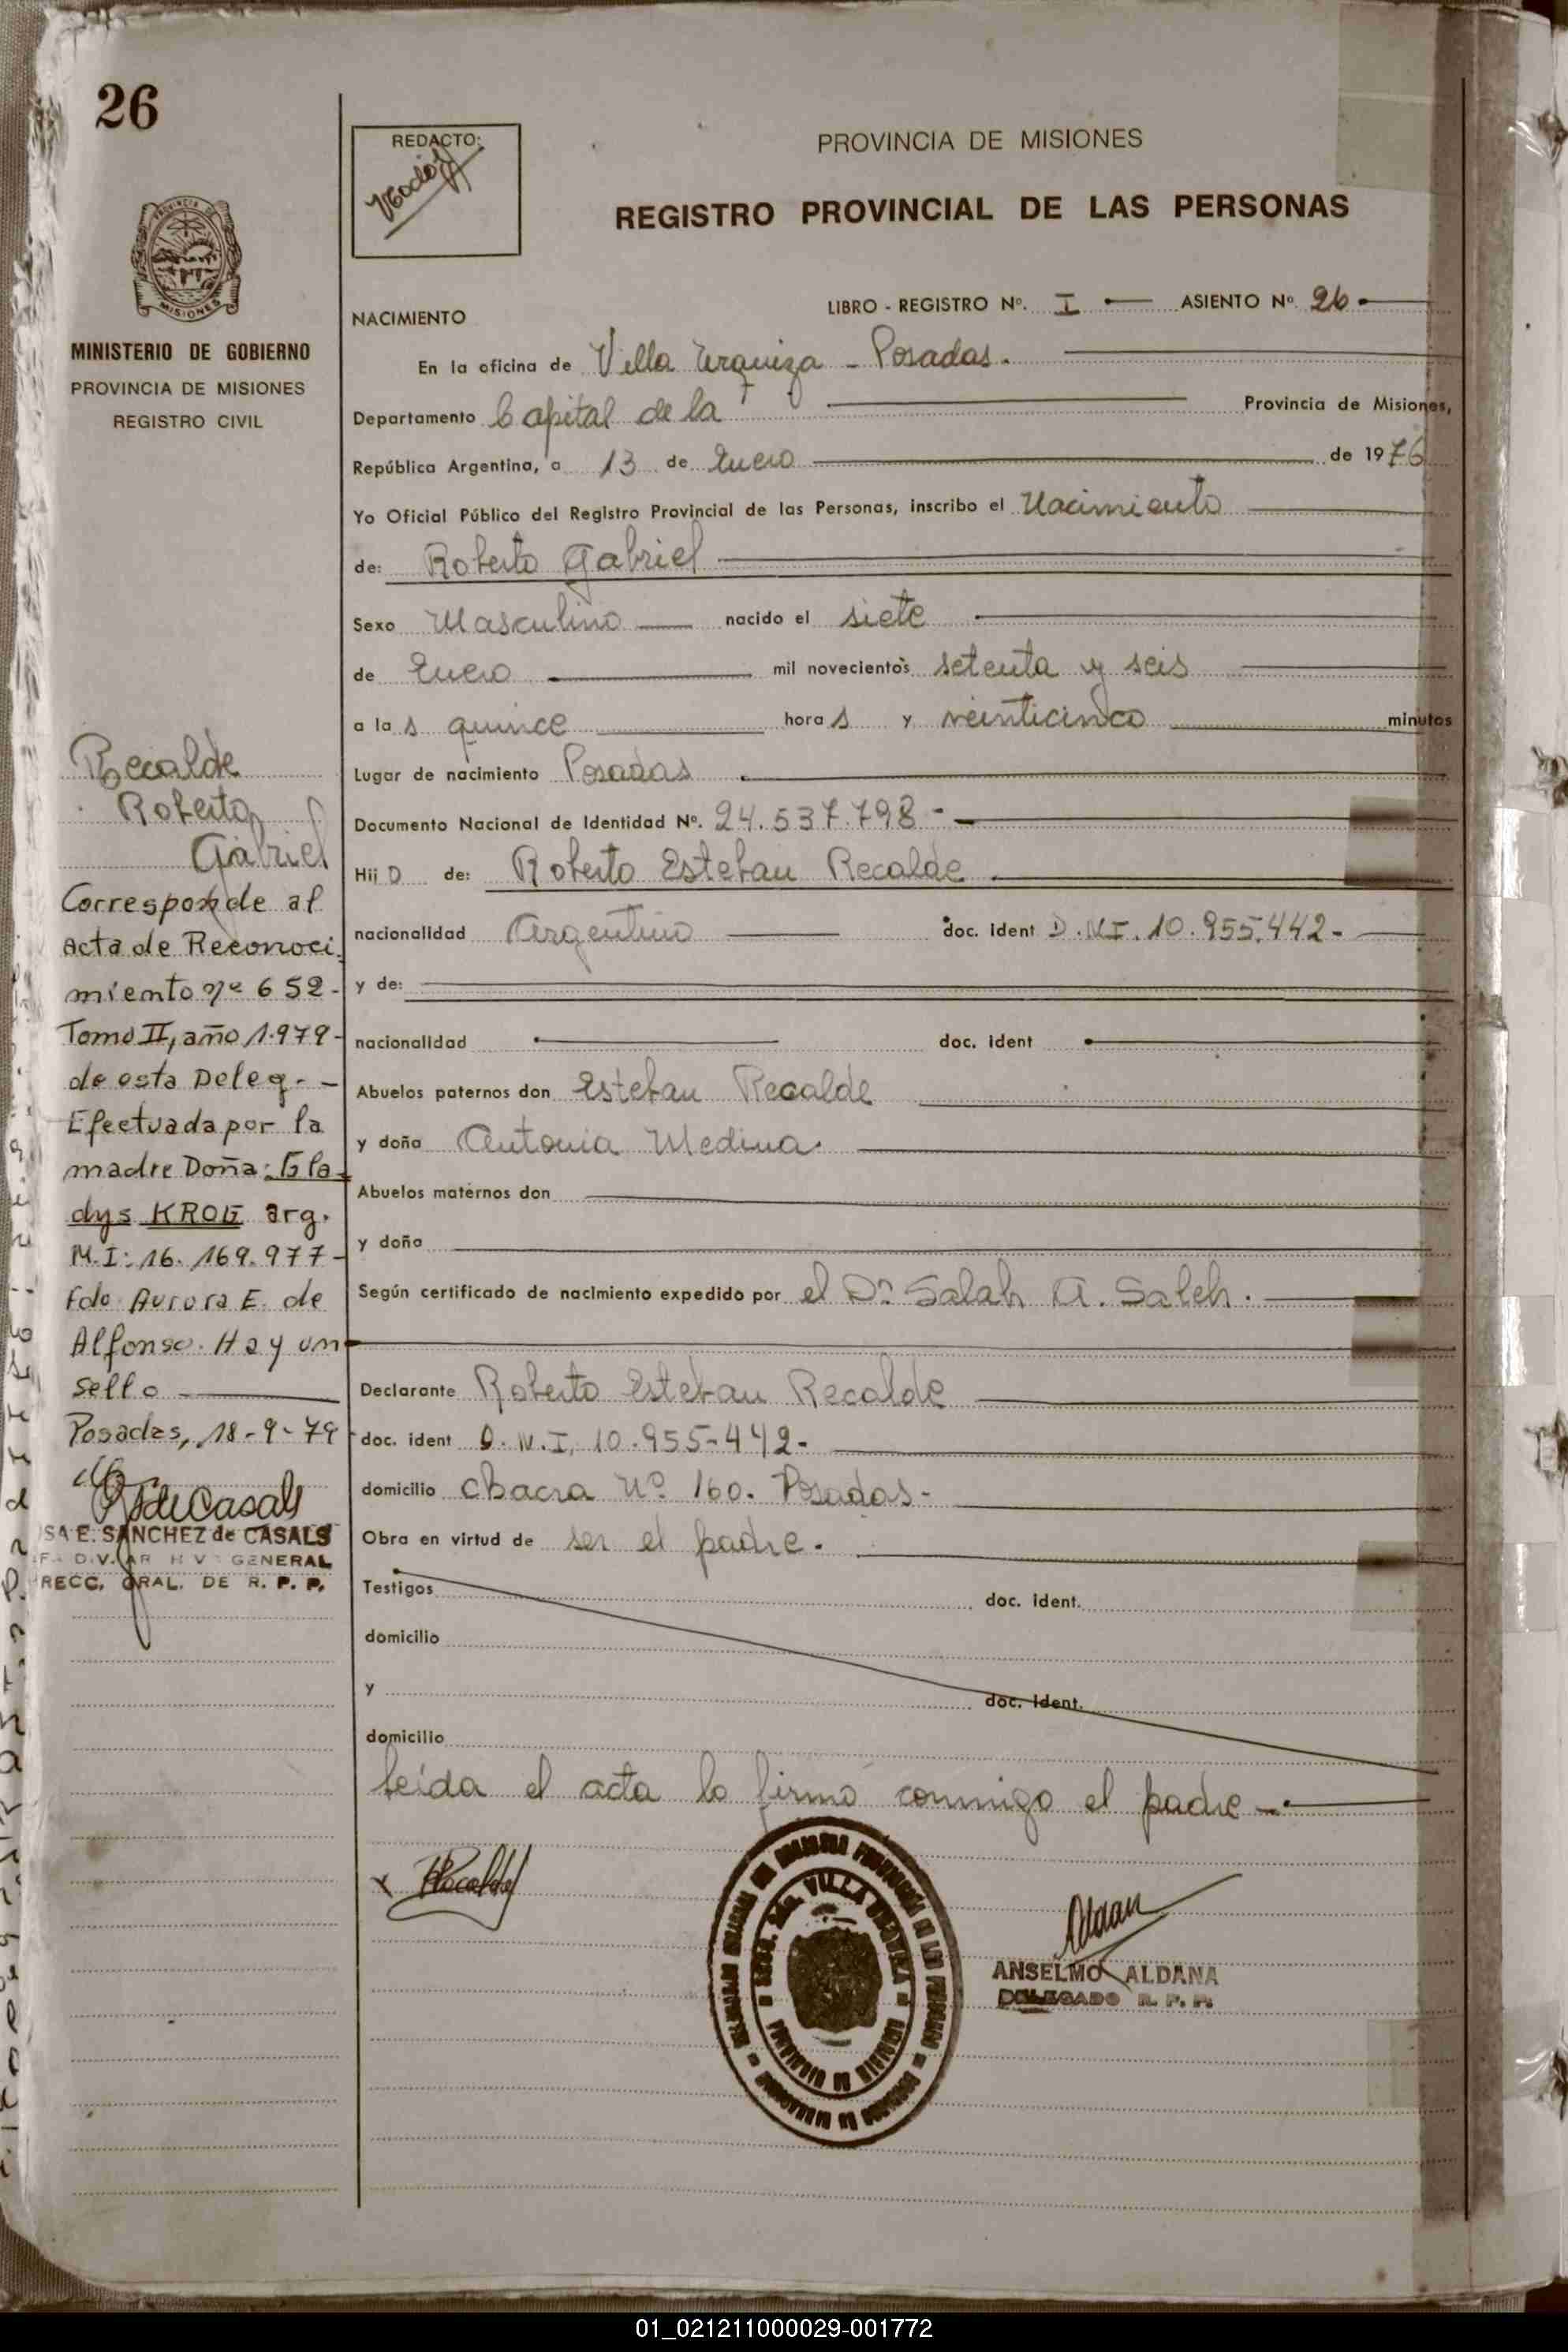 26
REDACTO:
PROVINCIA DE MISIONES
REGISTRO PROVINCIAL DE LAS PERSONAS
PROVINCIA DE
MISIONES
MINISTERIO DE GOBIERNO
PROVINCIA DE MISIONES
REGISTRO CIVIL
LIBRO - REGISTRO Nº. I ASIENTO Nº. 26
NACIMIENTO
En la oficina de Villa Urquiza - Posadas.
Departamento Capital de la Provincia de Misiones,
República Argentina, a 13 de Enero de 1976
Yo Oficial Público del Registro Provincial de las Personas, inscribo el Nacimiento
de: Roberto Gabriel
Sexo Masculino nacido el siete
de Enero mil novecientos setenta y seis
a las quince horas y veinticinco minutos
Lugar de nacimiento Posadas
Documento Nacional de Identidad Nº. 24.537.798-
Hijo de: Roberto Esteban Recalde
nacionalidad Argentino doc. ident D.N.I. 10.955.442-
y de:
nacionalidad doc. ident
Abuelos paternos don Esteban Recalde
y doña Antonia Medina.
Abuelos maternos don
y doña
Según certificado de nacimiento expedido por el Dr. Salah A. Saleh.
Declarante Roberto Esteban Recalde
doc. ident D.N.I. 10.955-442-
domicilio Chacra Nº 160. Posadas-
Obra en virtud de ser el padre.
Testigos doc. ident.
domicilio
y doc. ident.
domicilio
leída el acta lo firmó conmigo el padre-
Recalde
Roberto
Gabriel
Corresponde al
acta de Reconoci
miento nº 652-
Tomo II, año 1.979-
de esta Deleg.-
Efectuada por la
madre Doña: Gla-
dys KROG arg.
M.I: 16.169.977-
fdo Aurora E. de
Alfonso. Hay un
sello
Posadas, 18-9-79
SA E. SANCHEZ de CASALS
GENERAL
RECC. GRAL. DE R. P. P.
ANSELMO ALDANA
DELEGADO R. P. P.
01_021211000029-001772